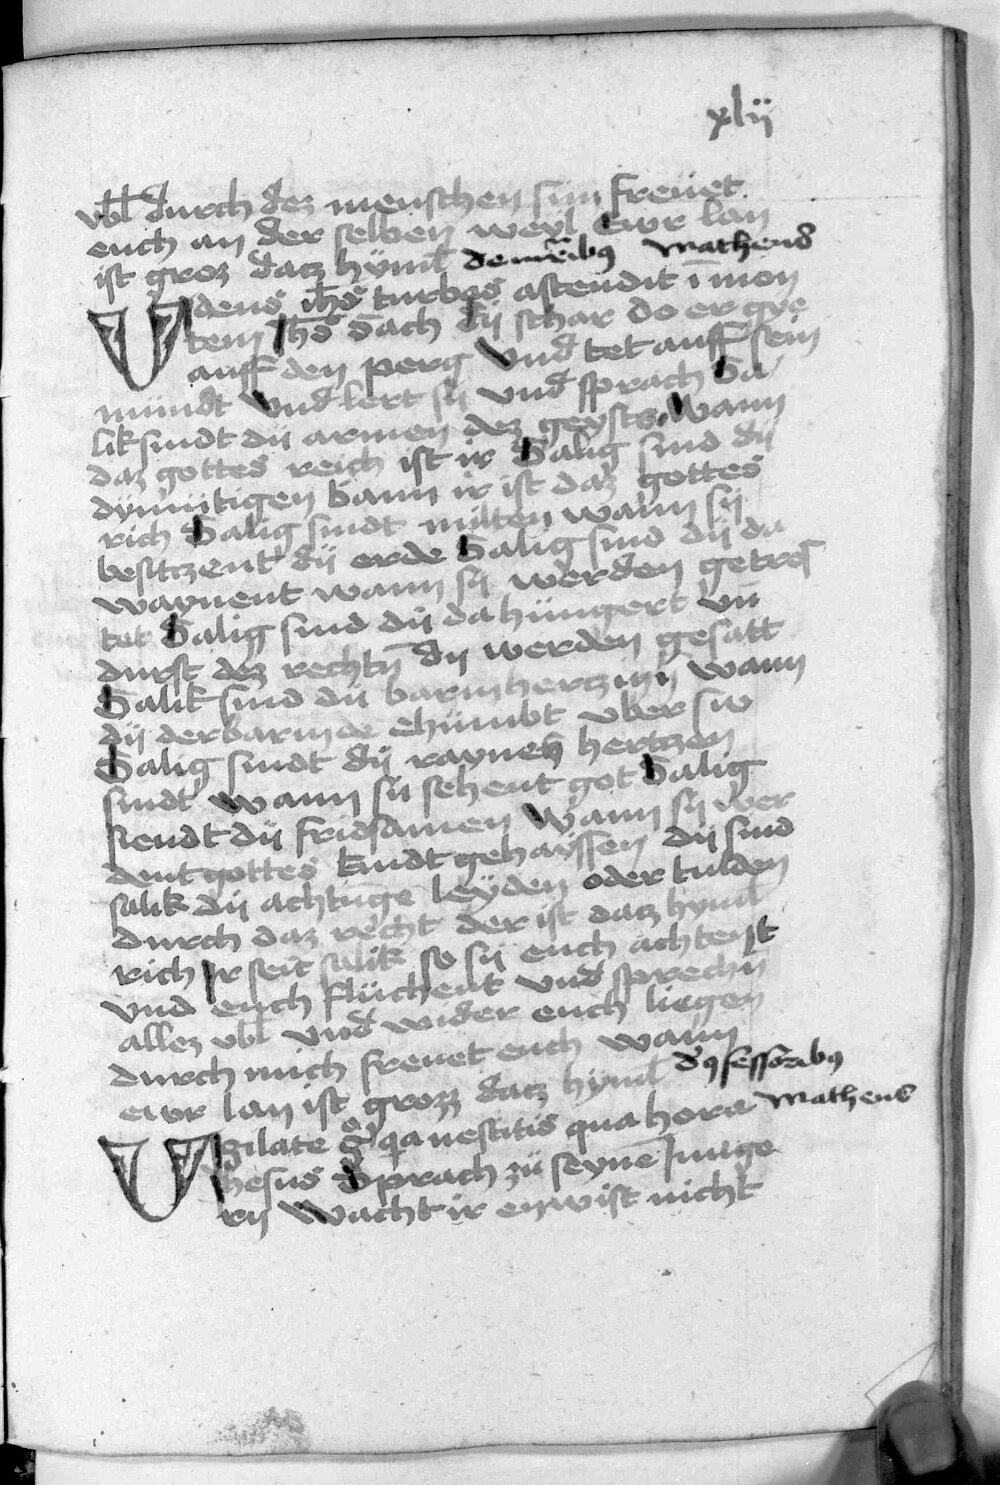 xlij
vbl durch dez menschen sun frewet
euch an der selben weyl Ewr lan
ist groz datz hyml de martiribus Matheus
Videns ihs turbas ascendit in mon
tem Ihs sach dy schar do er gye
auff den perg Vnd tet auff sein
mundt Vnd lert sy vnd sprach Sa
lik sindt dy armen dez geysts Wann
daz gottes reich ist ir Salig sind dy
dymutigen Wann ir ist daz gottes
rich Salig sindt milten wann sy
besitzent dy erde Salig sind dy da
waynent wann sy werden getros
tet Salig sind dy da hungert vn
durst dez rechtn dy werden gesatt
Salik sind dy barmhertzign wann
dy derbarmde chumbt vber sw
Salig sindt dy raynes hertzen
sindt Wann sy sehent got Salig
siendt dy fridsamen Wann sy wer
dent gottes kindt gehayssen dy sind
salik dy achtunge leyden oder tulden
durch daz recht der ist datz hyml
rich Ir seit salik so sy euch achtent
vnd euch fluchent vnd sprechn
allez vbl vnd wider euch liegen
durch mich frewet euch wann
ewr lan ist grozz datz hyml
Matheus
Vigilate qua nescitis qua hora
Ihesus Sprach zu seynen Iunge
rn Wacht ir enwist nicht